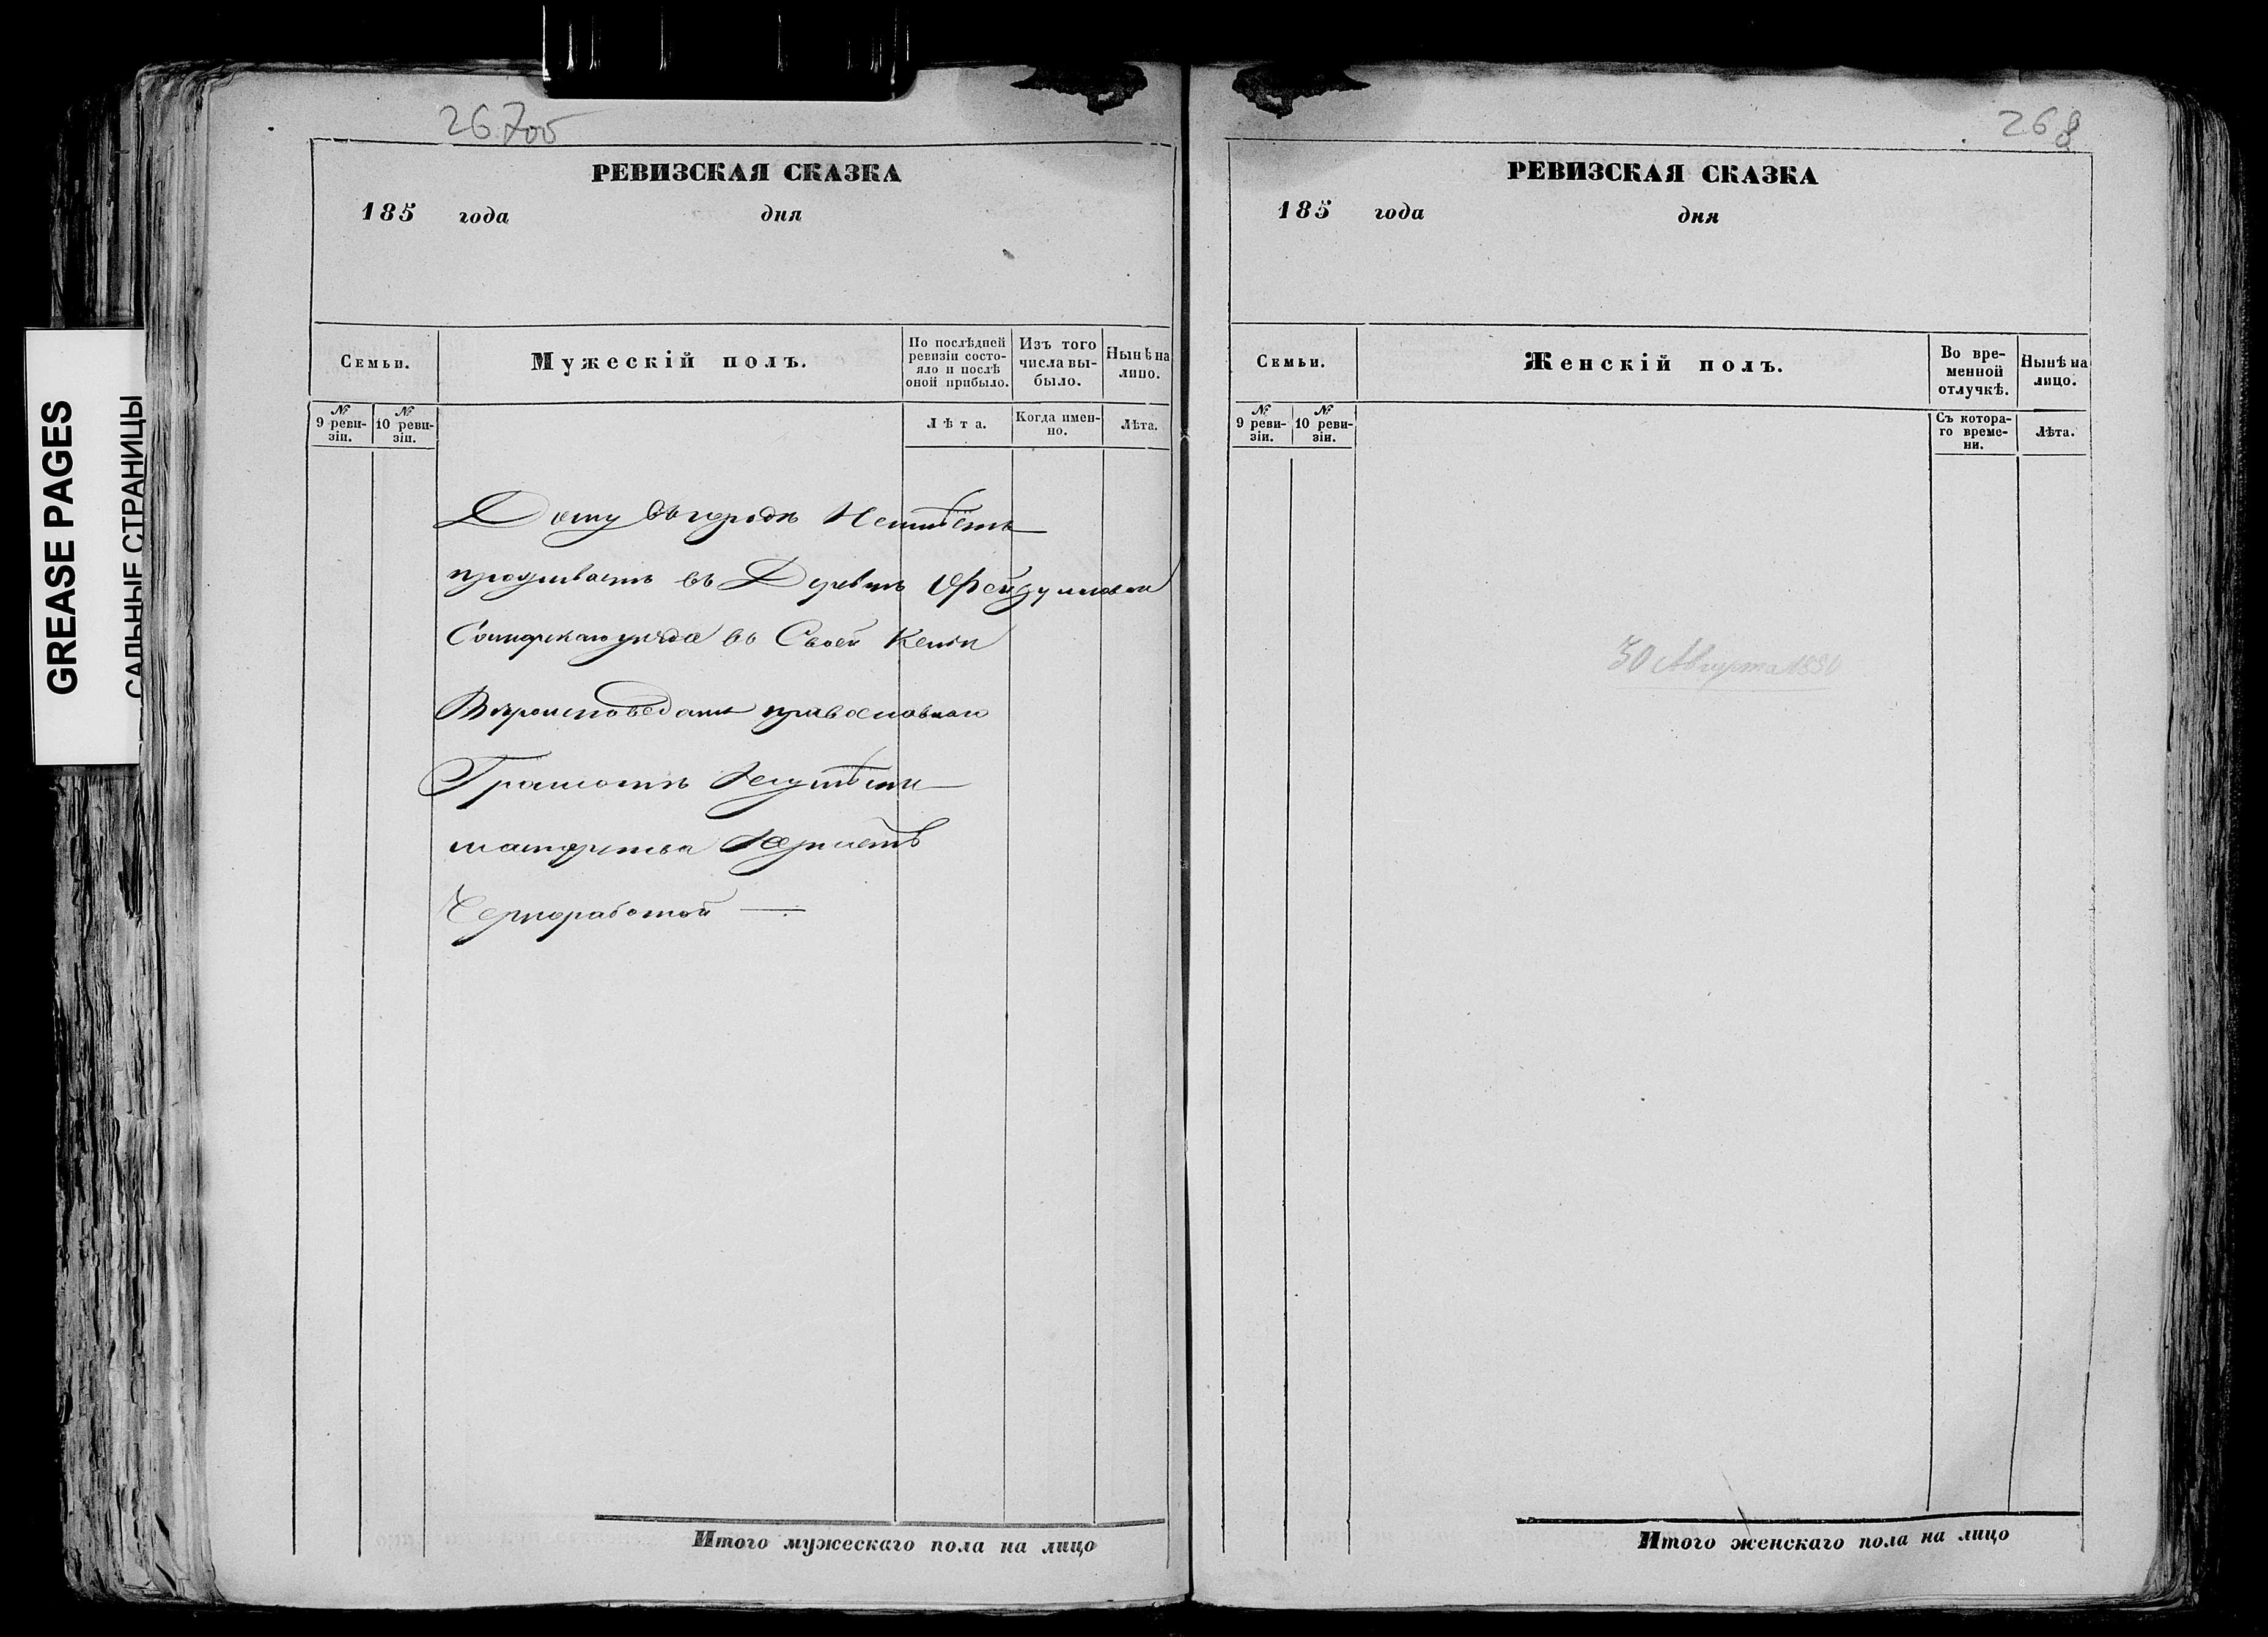 GREASE PAGES
САЛЬНЫЕ СТРАНИЦЫ
267об
РЕВИЗСКАЯ СКАЗКА
185 года дня
Семьи.
Мужескій полъ.
По послѣдней ревизіи состояло и послѣ оной прибыло.
Изъ того числа выбыло.
Нынѣ на лицо.
№ 9 ревизіи.
№ 10 ревизіи.
Лѣта.
Когда именно.
Лѣта.
Дому въ городѣ Неимѣетъ
проживаетъ въ Деревнѣ
уѣзда въ Своей
Вѣроисповеданія православнаго
Грамотѣ Неумѣетъ
мастерства
Черноработой —
Итого мужескаго пола на лицо
268
РЕВИЗСКАЯ СКАЗКА
185 года дня
Семьи.
Женскій полъ.
Во временной отлучкѣ.
Нынѣ на лицо.
№ 9 ревизіи.
№ 10 ревизіи.
Съ котораго времени.
Лѣта.
30 Августа 1850
Итого женскаго пола на лицо